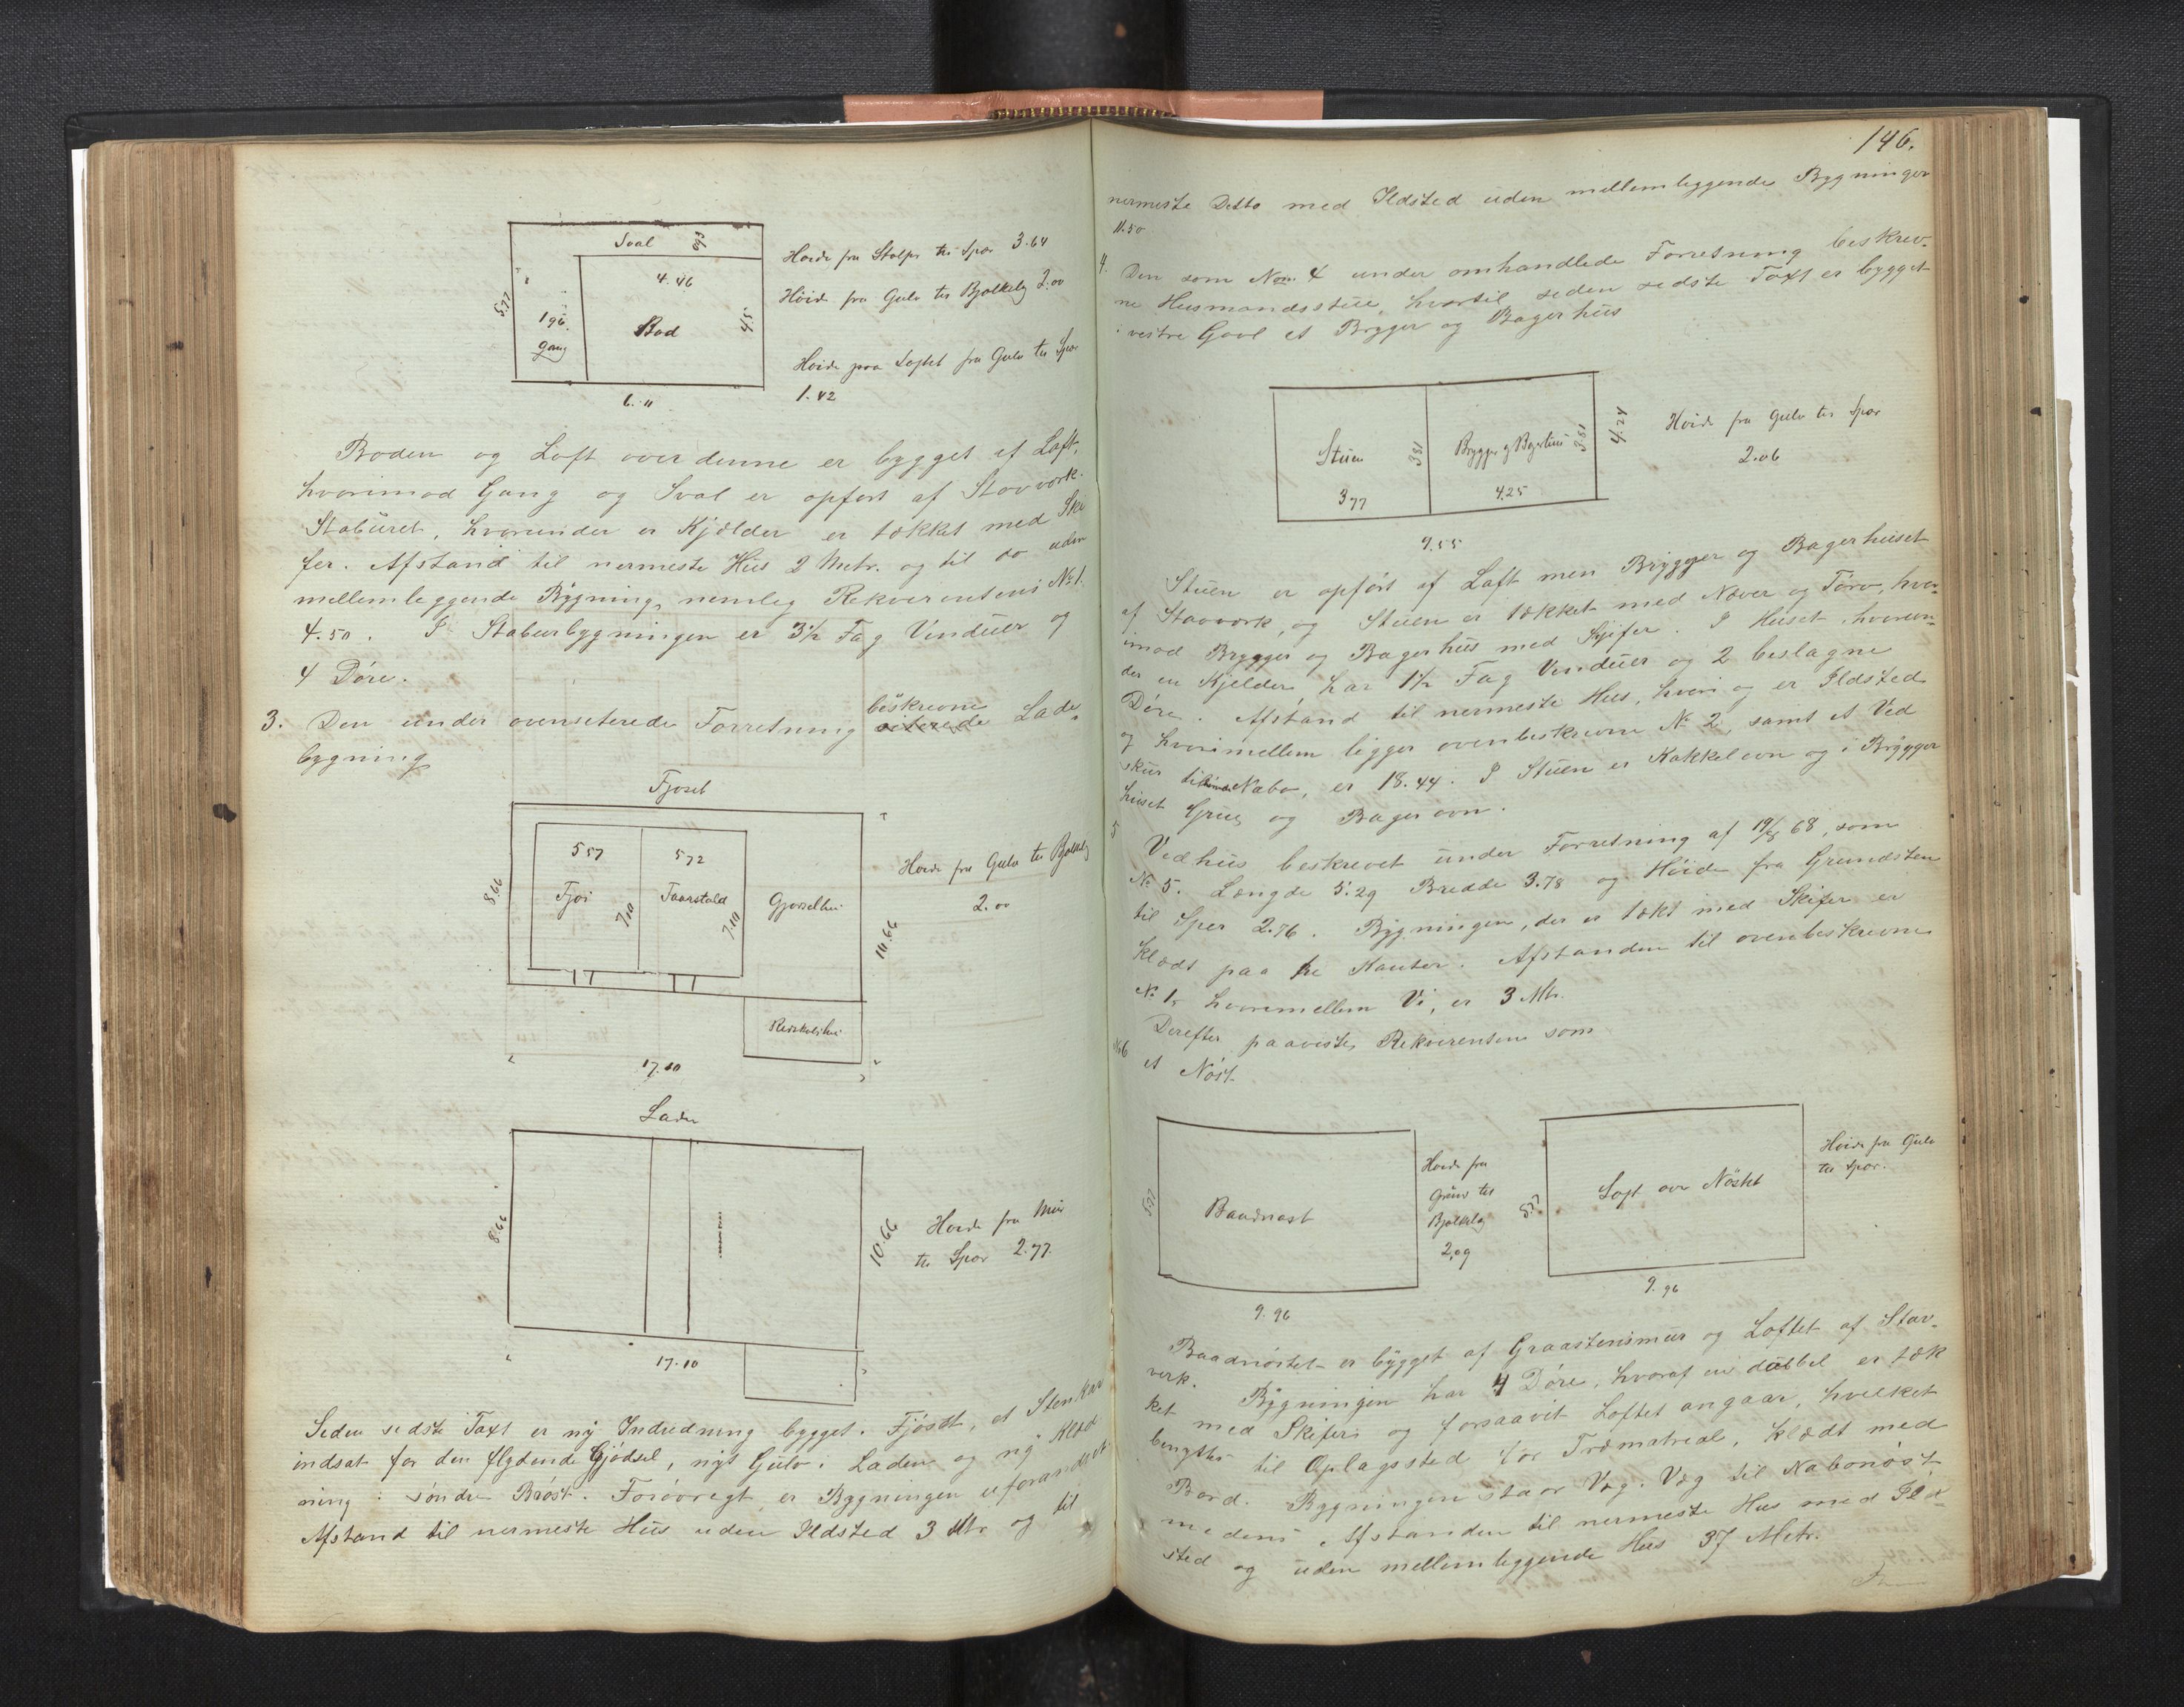 Sval 093
4.46
5.77
196.
gang
Bod
4.5
6.11
Høide fra Stolper til Sper 3.64
Høide fra Gulv til Bjelkelag 2.00
Høide paa Loftet fra Gulv til Sper
1.42
Boden og Loft over denne er bygget af Laft,
hvorimod Gang og Sval er opført af Stavverk.
Stabüret, hvorunder er Kjælder er tækket med Ski
fer. Afstand til nermeste Hus 2 Metr. og til do uden
mellemleggende Bygning, nemlig Rekverentens No 1.
4.50. I Staburbygningen er 3½ Fag Vinduer og
4 Døre.
3. Den under ovenciterede Forretning beskrevne Lade-
bygning
Fjøset
557
572
8.66
Fjøs
7.10
Taarstald
7.10
Gjødselhus
10.66
Redskabshus
17.10
Høide fra Gulv til Bjelkelag
2.00
Laden
8.66
10.66
17.10
Høide fra Mur
til Sper 2.77.
Siden sidste Taxt er ny Indredning bygget i Fjøset, et Stenkar
indsat for den flydende Gjødsel, nyt Gulv i Laden og ny Klæd
ning i søndre Brøst. Forøvrigt er Bygningen uforandret.
Afstand til nermeste Hus uden Ildsted 3 Mtr og til
146.
nermeste Ditto med Ildsted uden mellemleggende Bygninger
11.50
4. Den som No. 4 under omhandlede Forretning beskrev-
ne Husmandsstue, hvortil siden sidste Taxt er bygget
i vestre Gavl et Brygger og Bagerhus
Stuen
377
381
Brygger og Bagerhus
4.25
381
4.24
9.55
Høide fra Gulv til Sper
2.06
Stuen er opført af Laft men Brygger og Bagerhuset
af Stavverk, og Stuen er tækket med Næver og Tørv, hvor-
imod Brygger og Bagerhus med Skifer. I Huset, hvorun-
der en Kjelder, har 1½ Fag Vinduer og 2 beslagne
Døre. Afstand til nermeste Hus, hvori og er Ildsted
og hvorimellem ligger ovenbeskrevne No 2, samt et Ved
skur til Nabo, er 18.44. I Stuen er Kakkelovn og i Brygger
huset Grue og Bagerovn.
5 Vedhus beskrevet under Forretning af 19/8 68, som
No 5. Længde 5.29 Bredde 3.78 og Høide fra Grundsten
til Sper 2.76. Bygningen, der er tækt med Skifer er
klædt paa tre Kanter. Afstanden til ovenbeskrevne
No 1, hvorimellem Vei, er 3 Mtr.
No 6 Derefter paavistes Rekverenten som
et Nøst
Baadnøst
5.97
9.96
Høide fra
Grund til
Bjelkelag
2,09
Loft over Nøstet
5.97
9.96
Høide fra Gulv
til Sper.
Baadnøstet er bygget af Graastensmur og Loftet af Stav-
verk. Bygningen har 4 Døre, hvoraf en dubbel er tæk
ket med Skifer og forsaavit Loftet angaar, hvilket
benyttes til Oplagssted for Træmatreal, klædt med
Bord. Bygningen staar Væg i Væg til Nabonøst
medens Afstanden til nermeste Hus med Ild-
sted og uden mellemleggende Hus 37 Metr.